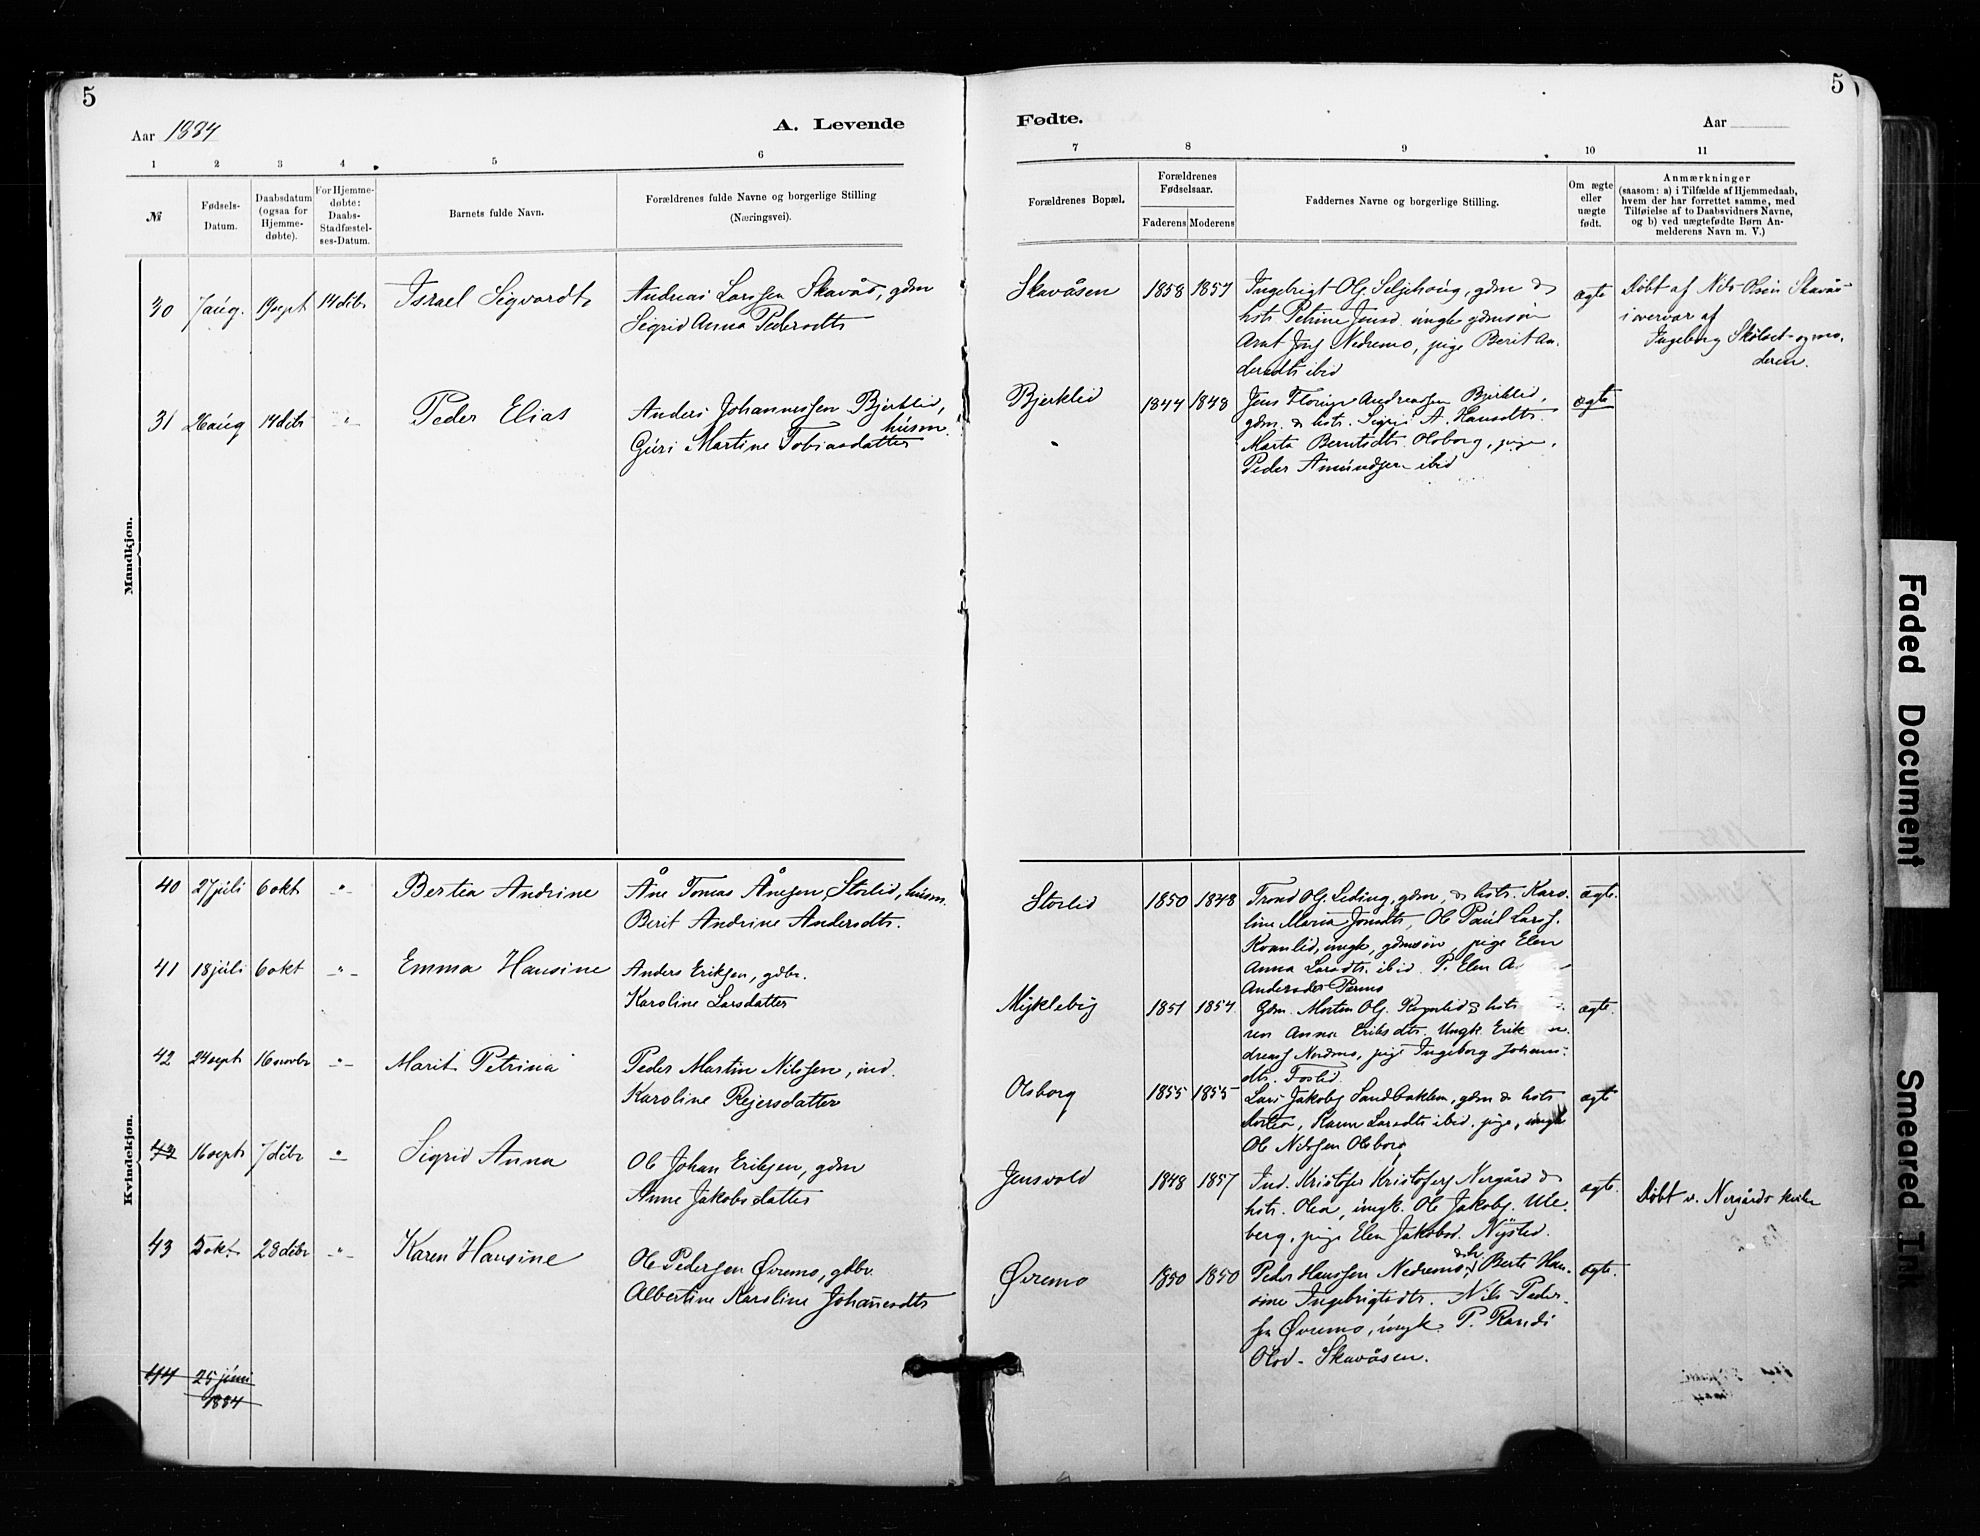 5
5
Aar 1884
A. Levende
Fødte.
Aar
1 2 3 4 5 6
7 8 9 10 11
№
Fødsels-
Datum.
Daabsdatum
(ogsaa for
Hjemme-
døbte).
For Hjemme-
døbte:
Daabs-
Stadfæstel-
ses-Datum.
Barnets fulde Navn.
Forældrenes fulde Navne og borgerlige Stilling
(Næringsvei).
Forældrenes Bopæl.
Forældrenes
Fødselsaar.
Faderens Moderens
Faddernes Navne og borgerlige Stilling.
Om ægte
eller
uægte
født.
Anmærkninger
(saasom: a) i Tilfælde af Hjemmedaab,
hvem der har forrettet samme, med
Tilføielse af to Daabsvidners Navne,
og b) ved uægtefødte Børn An-
melderens Navn m. V.)
Mandkjøn.
30 7 aug. 19 sept 14 dibr Israel Sigvardt
Andreas Larssen Skavås, gdm
Sigrid Anna Pedersdtr
Skavåsen 1858 1857
Ingebrigt Ols. Seljehaug, gdm &
hstr Petrine Jensd. ungk gdmsøn
Arnt Jens Nedremo, pige Berit An-
dersdtr ibid
ægte
Døbt af Nils Olsen Skavås
i overvær af
Ingeborg Skölset og mo-
deren.
31 26 aug 14 dibr -"- Peder Elias
Anders Johannessen Bjerklid,
husm.
Guri Martine Tobiasdatter
Bjerklid 1844 1848
Jens Andreassen Bjerklid,
gdm. & hstr. Sigri A. Hansdtr.
Marta Berntsdtr. Olsborg, pige,
Peder Amundsen ibid
ægte
Kvindekjøn.
40 27 juli 6 okt -"- Bertea Andrine
Åne Tomas Ånesen Storlid, husm.
Berit Andrine Andersdtr.
Storlid 1850 1848
Trond Ols. Leding, gdm, & hstr. Karo-
line Maria Jonsdtr, Ole Paul Larss.
Kvanlid, ungk, gdmsøn, pige Elen
Anna Larsdtr. ibid. P. Elen
Andersdtr Permo
ægte.
41 18 juli 6 okt -"- Emma Hansine
Anders Eriksen, gdbr.
Karoline Larsdatter
Myklebÿ 1851 1854
Gdm. Morten Ols. Kvanlid & hstr
ren Anna Eriksdtr. Ungk. Erik
dreass Nordmo, pige Ingeborg Johans-
dtr. Foslid.
ægte.
42 24 sept 16 novbr -"- Marit Petrina
Peder Martin Nilssen, ind.
Karoline Rejersdatter
Olsborg 1855 1855
Lars Jakobs Sandbakken, gdm & hstr
Dortea, Karen Larsdtr ibid. pige, ungk
Ole Nilssen Olsborg
ægte
43 16 sept 7 dibr " Sigrid Anna
Ole Johan Eriksen, gdm
Anne Jakobsdatter
Jensvold 1848 1857
Ind. Kristofer Kristofers Nergård &
hstr. Olea, ungk. Ole Jakobs. Ule-
berg, pige Elen Jakobsd. Nysted.
ægte.
Døbt v. Nergårds kirke
43 5 okt. 28 dibr -"- Karen Hansine
Ole Pedersen Øvremo, gdbr.
Albertine Karoline Johannesdtr
Øvremo 1850 1850
Peder Hanssen Nedremo & h. Berte Han-
sine Ingebrigtsdtr. Nils Peder-
sen Øvremo, ungk. P. Randi
Olsd. Skavåsen.
ægte.
44 25 juni
1884
Faded Document
Smeared Ink